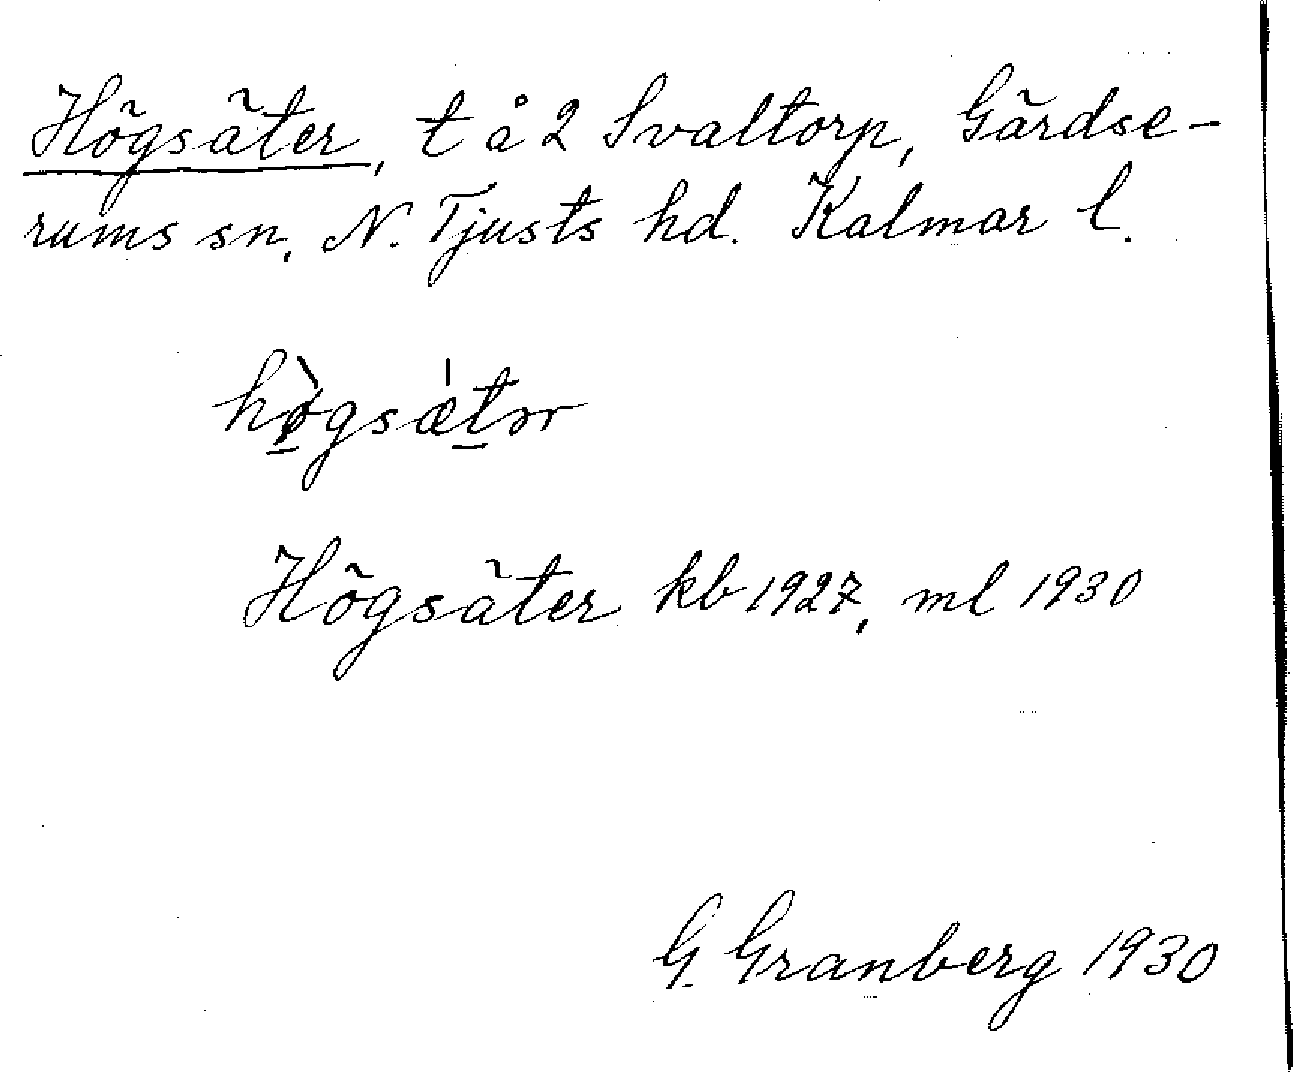 Högsäter, t å 2 Svaltorp, Gärdse-
rums sn, N. Tjusts hd. Kalmar l.
hø̠̀gsæ̍t̠ər
Högsäter kb 1927, ml 1930
G. Granberg 1930